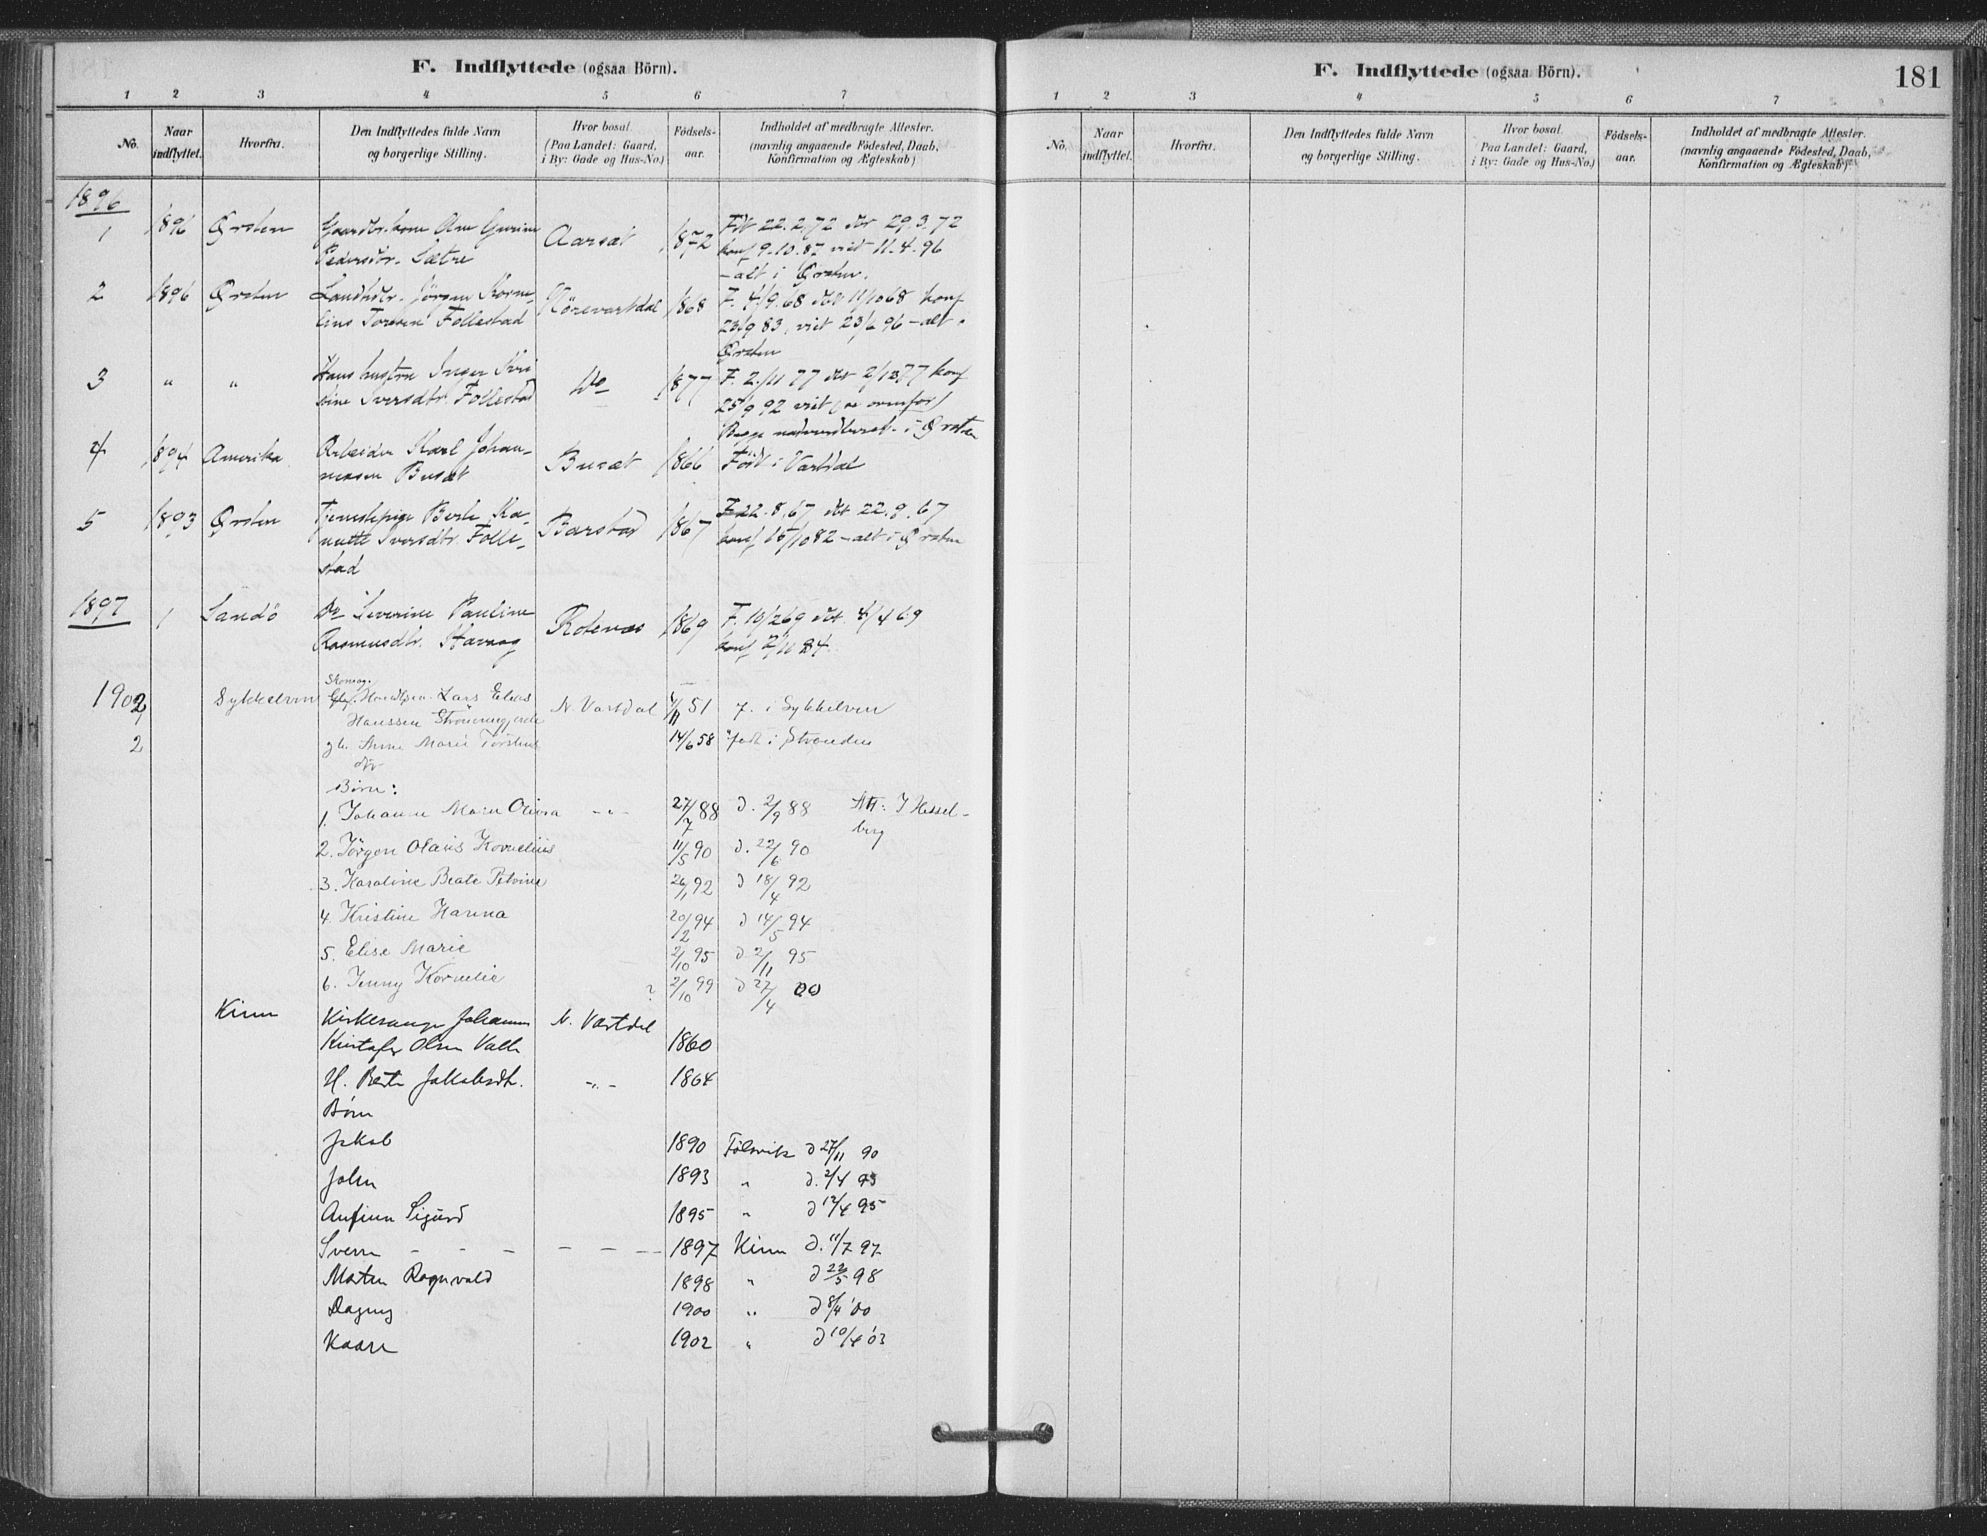 F. Indflyttede (ogsaa Börn).
1 2 3 4 5 6 7
No. Naar indflyttet. Hvorfra. Den Indflyttedes fulde Navn og borgerlige Stilling. Hvor bosat. (Paa Landet: Gaard, i By: Gade og Hus-No.) Födsels-aar. Indholdet af medbragte Attester. (navnlig angaaende Födested, Daab, Konfirmation og Ægteskab)
1896
1 1896 Ørsten Gaardbr. kone Ane Gurine Aarsæt 1872 Föt 22.2.72 döt 29.3.72
Pedersdtr. Sætre konf 9.10.87 viet 11.4.96
- alt i Ørsten.
2 1896 Ørsten Landhdlr. Jörgen Korne- Nörevartdal 1868 F. 4/9.68 döt 11/10 68 konf
lius Toresen Follestad 23/9 83, viet 23/6 96 - alt i
Ørsten
3 " " Hans hustru Inger Kri- Do 1877 F. 2/11 77 döt 2/12 77 konf
stine Iversdtr. Follestad 25/9 92 viet (se ovenfor)
Begge i Ørsten
4 1894 Amerika Arbeider Karl Johan- Busæt 1866 Født i Vartdal
nesen Busæt
5 1893 Ørsten Tjenestepige Berte Ka- Barstad 1867 F. 22.8.67 döt 22.9.67
nutte Iversdtr. Folle- konf 15/10 82 - alt i Ørsten
stad
1897
1 Sandö Do Severine Pauline Rotenes 1869 F. 10/2 69 döt 4/4 69
Rasmusdtr. konf /11 84.
Skomag.
1902 Sykkelven Lars Elias N. Vartdal /11 51 f. i Sykkelven
Hanssen Strömmegjerde
2 gh. Anne Marie Torstens 14/6 58 født i Stranden
dtr
Børn:
1. Johanne Marie Olivia -"- 27/7 88 d. 2/9 88 Att: J Hessel-
berg
2. Jörgen Olaus Kornelius 11/5 90 d. 22/6 90
3. Karoline Beate Petvine 26/1 92 d 18/4 92
4. Kristine Hanna 20/2 94 d 14/5 94
5. Elise Marie 2/10 95 d 2/11 95
6. Jenny Kornelie ? 2/10 99 d 27/4 00
Kinn Kirkesanger Johannes N. Vartdal
Kristofer Olsen Valle 1860
H. Berte Jakobsdt. -"- 1864
Børn
Jakob 1890 Følsvik d 27/11 90
John 1893 " d. 2/4 93
Anfinn Sigurd 1895 " d 12/4 95
Sverre - - - - - - 1897 Kinn d. 11/7 97
Morten Ragnvald 1898 " d 22/5 98
Dagny 1900 " d 8/4 '00
Kaare 1902 " d 10/4 '03
F. Indflyttede (ogsaa Börn).
181
1 2 3 4 5 6 7
No. Naar indflyttet. Hvorfra. Den Indflyttedes fulde Navn og borgerlige Stilling. Hvor bosat. Paa Landet: Gaard, i By: Gade og Hus-No.) Födsels-aar. Indholdet af medbragte Attester. (navnlig angaaende Födested, Daab, Konfirmation og Ægteskab).